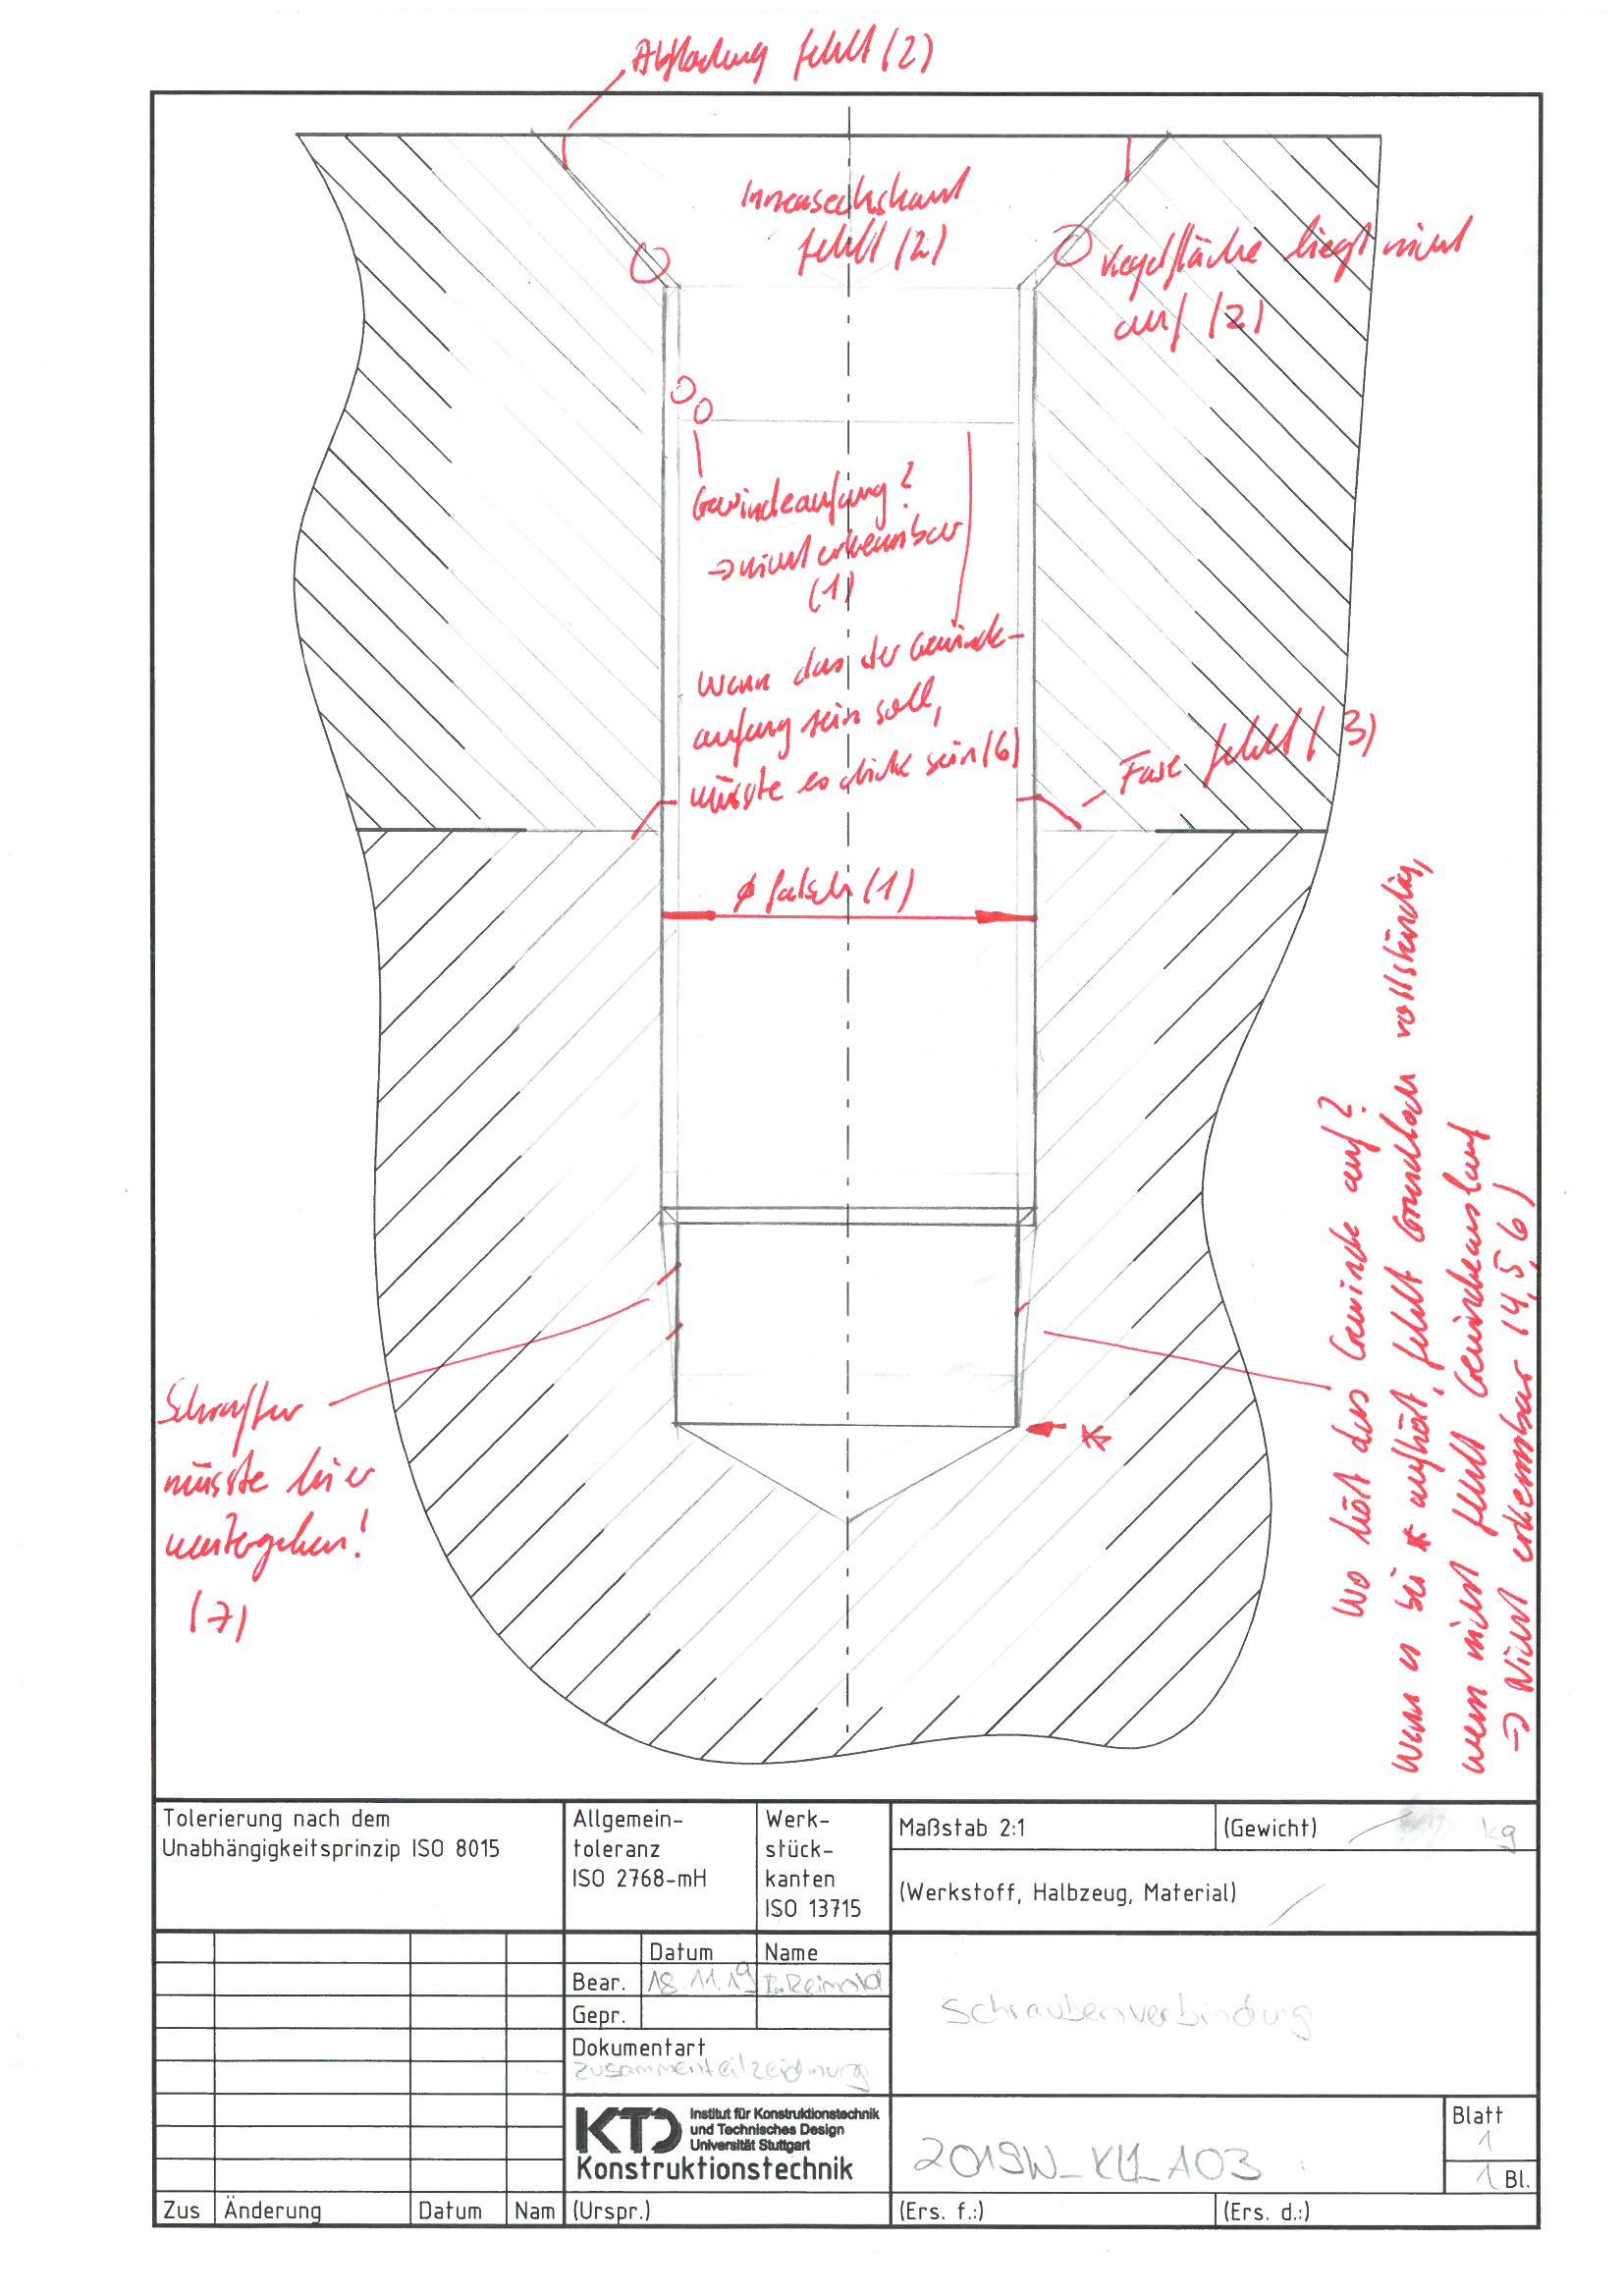 Abflachung fehlt (2)
Innensechskant
fehlt (2)
Kegelfläche liegt nicht
auf (2)
Gewindeanfang?
→ nicht erkennbar
(1)
Wenn das der Gewinde-
anfang sein soll,
müsste es dick sein (6)
Fase fehlt (3)
ø falsch (1)
Wo hört das Gewinde auf?
Wenn es bei * aufhört, fehlt Grundloch vollständig,
wenn nicht fehlt Gewindeauslauf
→ Nicht erkennbar (4, 5, 6)
*
Schraffur
müsste hier
weitergehen!
(7)
Tolerierung nach dem
Unabhängigkeitsprinzip ISO 8015
Allgemein-
toleranz
ISO 2768-mH
Werk-
stück-
kanten
ISO 13715
Maßstab 2:1
(Gewicht)
kg
(Werkstoff, Halbzeug, Material)
Datum Name
Bear. 18.11.19 I. Reinold
Gepr.
Dokumentart
Zusammenteilzeichnung
Schraubenverbindung
KTD Institut für Konstruktionstechnik
und Technisches Design
Universität Stuttgart
Konstruktionstechnik
2019W_KL1_A03
Blatt
1
1 Bl.
Zus Änderung Datum Nam (Urspr.) (Ers. f.:) (Ers. d.:)